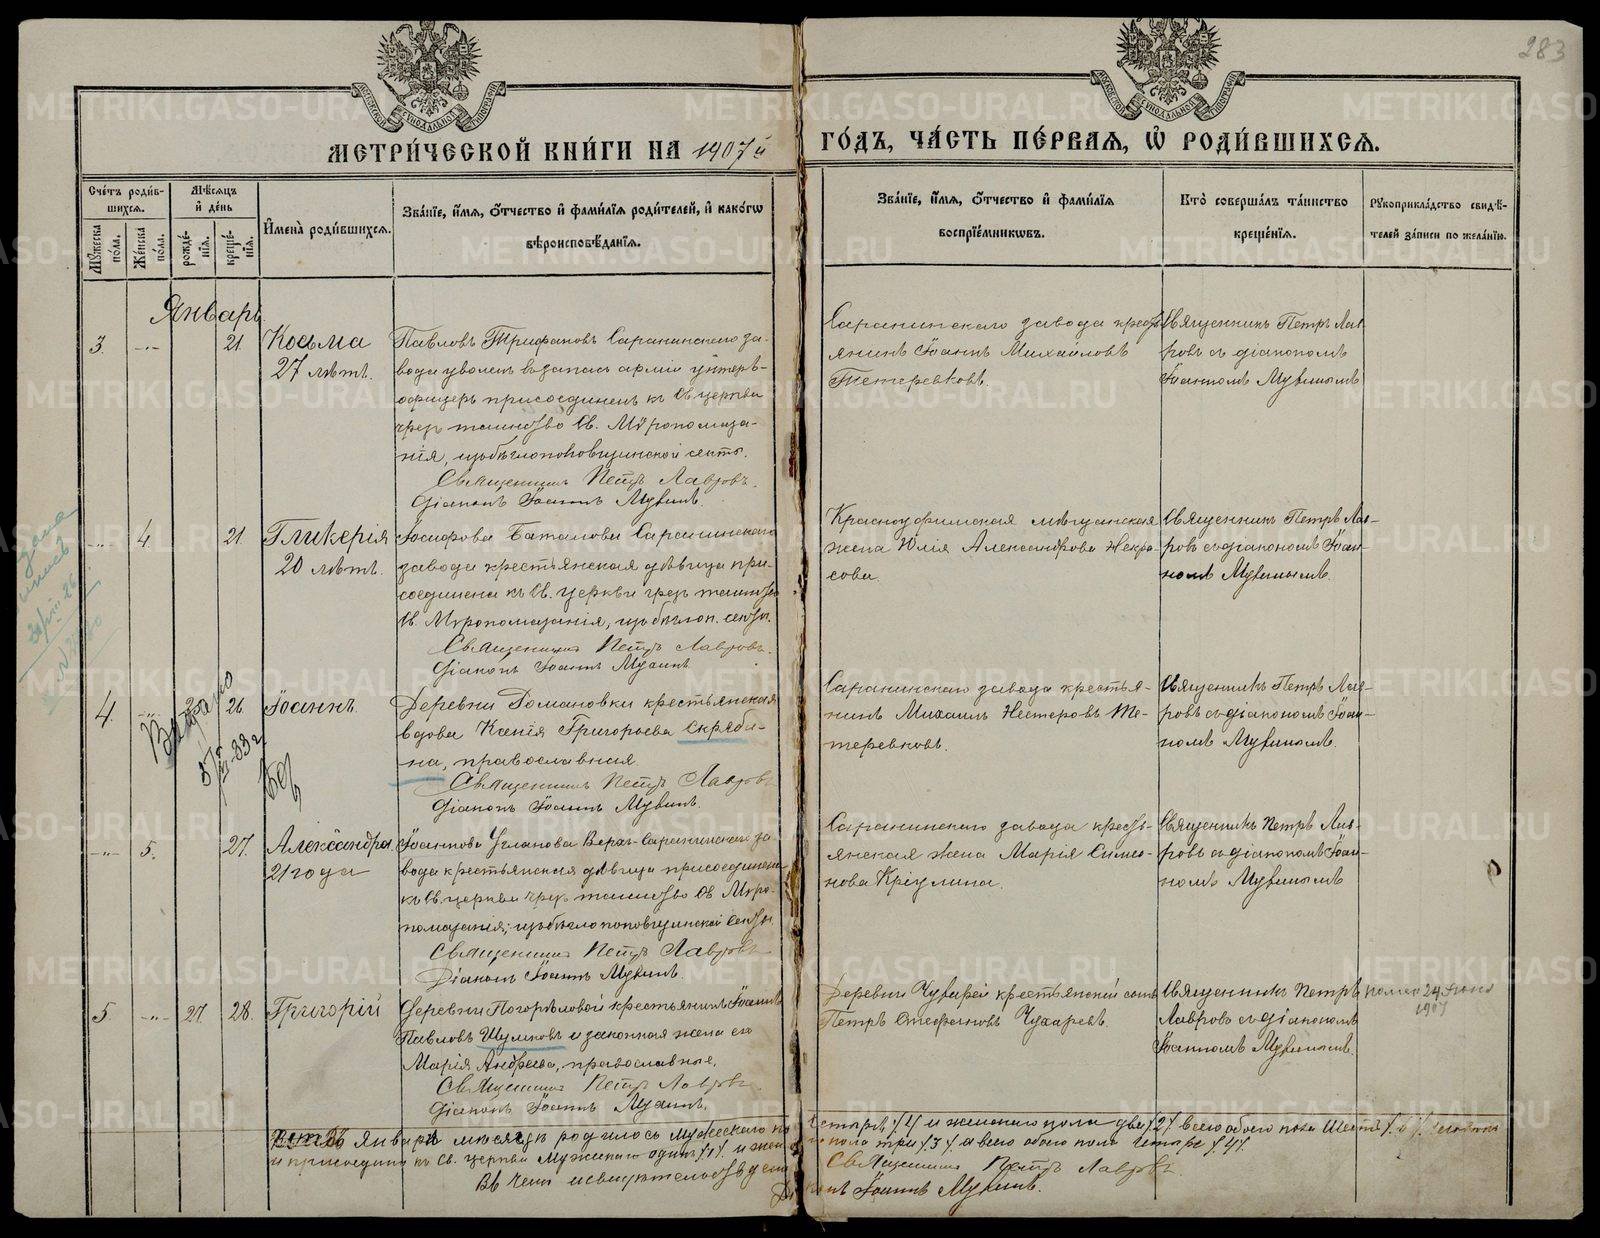 283
МЕТРИ́ЧЕСКОЙ КНИ́ГИ НА 1907й ГО́ДЪ, ЧА́СТЬ ПЕ́РВАЯ, Ѡ РОДИ́ВШИХСЯ.
Сче́тъ роди́вшихся.
Мꙋжеска по́ла.
Же́нска по́ла.
Мѣ́сяцъ и҆ де́нь
рожде́нїя.
креще́нїя.
И҆мена̀ роди́вшихся.
Зва́нїе, и҆́мя, ѻ҆́тчество и҆ фами́лїя роди́телей, и҆ како́гѡ
вѣроисповѣ́данїя.
Зва́нїе, и҆́мя, ѻ҆́тчество и҆ фами́лїя
воспрїе́мникѡвъ.
Кто̀ соверша́лъ та́инство
креще́нїя.
Рꙋкоприкла́дство свидѣ́-
телей за́писи по жела́нїю.
Январь
3. -"- 21. Косьма
27 лѣтъ.
Павловъ Трифановъ Саранинскаго за-
вода уволен. в запасъ арміи унтеръ-
офицеръ присоединенъ къ Св. церкви
чрезъ таинство Св. Мѵропомаза-
нія, изъ бѣглопоповщинской секты.
Священникъ Петръ Лавровъ.
Діаконъ Іоаннъ Мувинъ.
Саранинскаго завода кресть-
янинъ Іоаннъ Михайловъ
Тетеревковъ.
Священникъ Петръ Лав-
ровъ съ діакономъ
Іоанномъ
-"- 4. 21. Гликерія
20 лѣтъ.
Іосифова Баталова Саранинскаго
завода крестьянская дѣвица при-
соединена къ Св. церкви чрезъ таинство
Св. Мѵропомазанія, изъ бѣглоп. секты.
Священникъ Петръ Лавровъ.
Діаконъ Іоаннъ
Красноуфимская мѣщанская
жена Юлія Александрова Некра-
сова.
Священникъ Петръ Лав-
ровъ съ діакономъ Іоан-
номъ
4. -"- 25 26 Іоаннъ.
Деревни Романовки крестьянская
вдова Ксенія Григорьева Скряби-
на, православная.
Священникъ Петръ Лавровъ
Діаконъ Іоаннъ
Саранинскаго завода крестья-
нинъ Михаилъ Нестеровъ Те-
теревковъ.
Священникъ Петръ Лав-
ровъ съ діакономъ Іоан-
номъ
-"- 5. 27. Александра
21 года
Іоаннова Угланова Верхъ-Саранинскаго за-
вода крестьянская дѣвица присоединена
къ Св. церкви чрезъ таинство Св. Мѵро-
помазанія, изъ бѣглопоповщинской секты.
Священникъ Петръ Лавровъ
Діаконъ Іоаннъ
Саранинскаго завода кресть-
янская жена Марія Симео-
нова
Священникъ Петръ Лав-
ровъ съ діакономъ Іоан-
номъ
5. -"- 27. 28. Григорій
Деревни Погорѣловой крестьянинъ Іоаннъ
Павловъ Шуляковъ и законная жена его
Марія Андреева, православные.
Священникъ Петръ Лавровъ
Діаконъ Іоаннъ
Деревни Чувари крестьянскій сынъ
Петръ Стефановъ Чухаревъ.
Священникъ Петръ
Лавровъ съ діакономъ
Іоанномъ
24 Іюня
1907
Январѣ мѣсяцѣ родилось мужескаго
четыре /4/ и женскаго пола два /2/ всего обоего пола шесть /6/
и присоедин. къ Св. церкви мужскаго одинъ /1/ и жен-
пола три /3/ а всего обоего пола четыре /4/.
Въ чемъ и свидѣтельствуемъ
Священникъ Петръ Лавровъ.
Діаконъ Іоаннъ